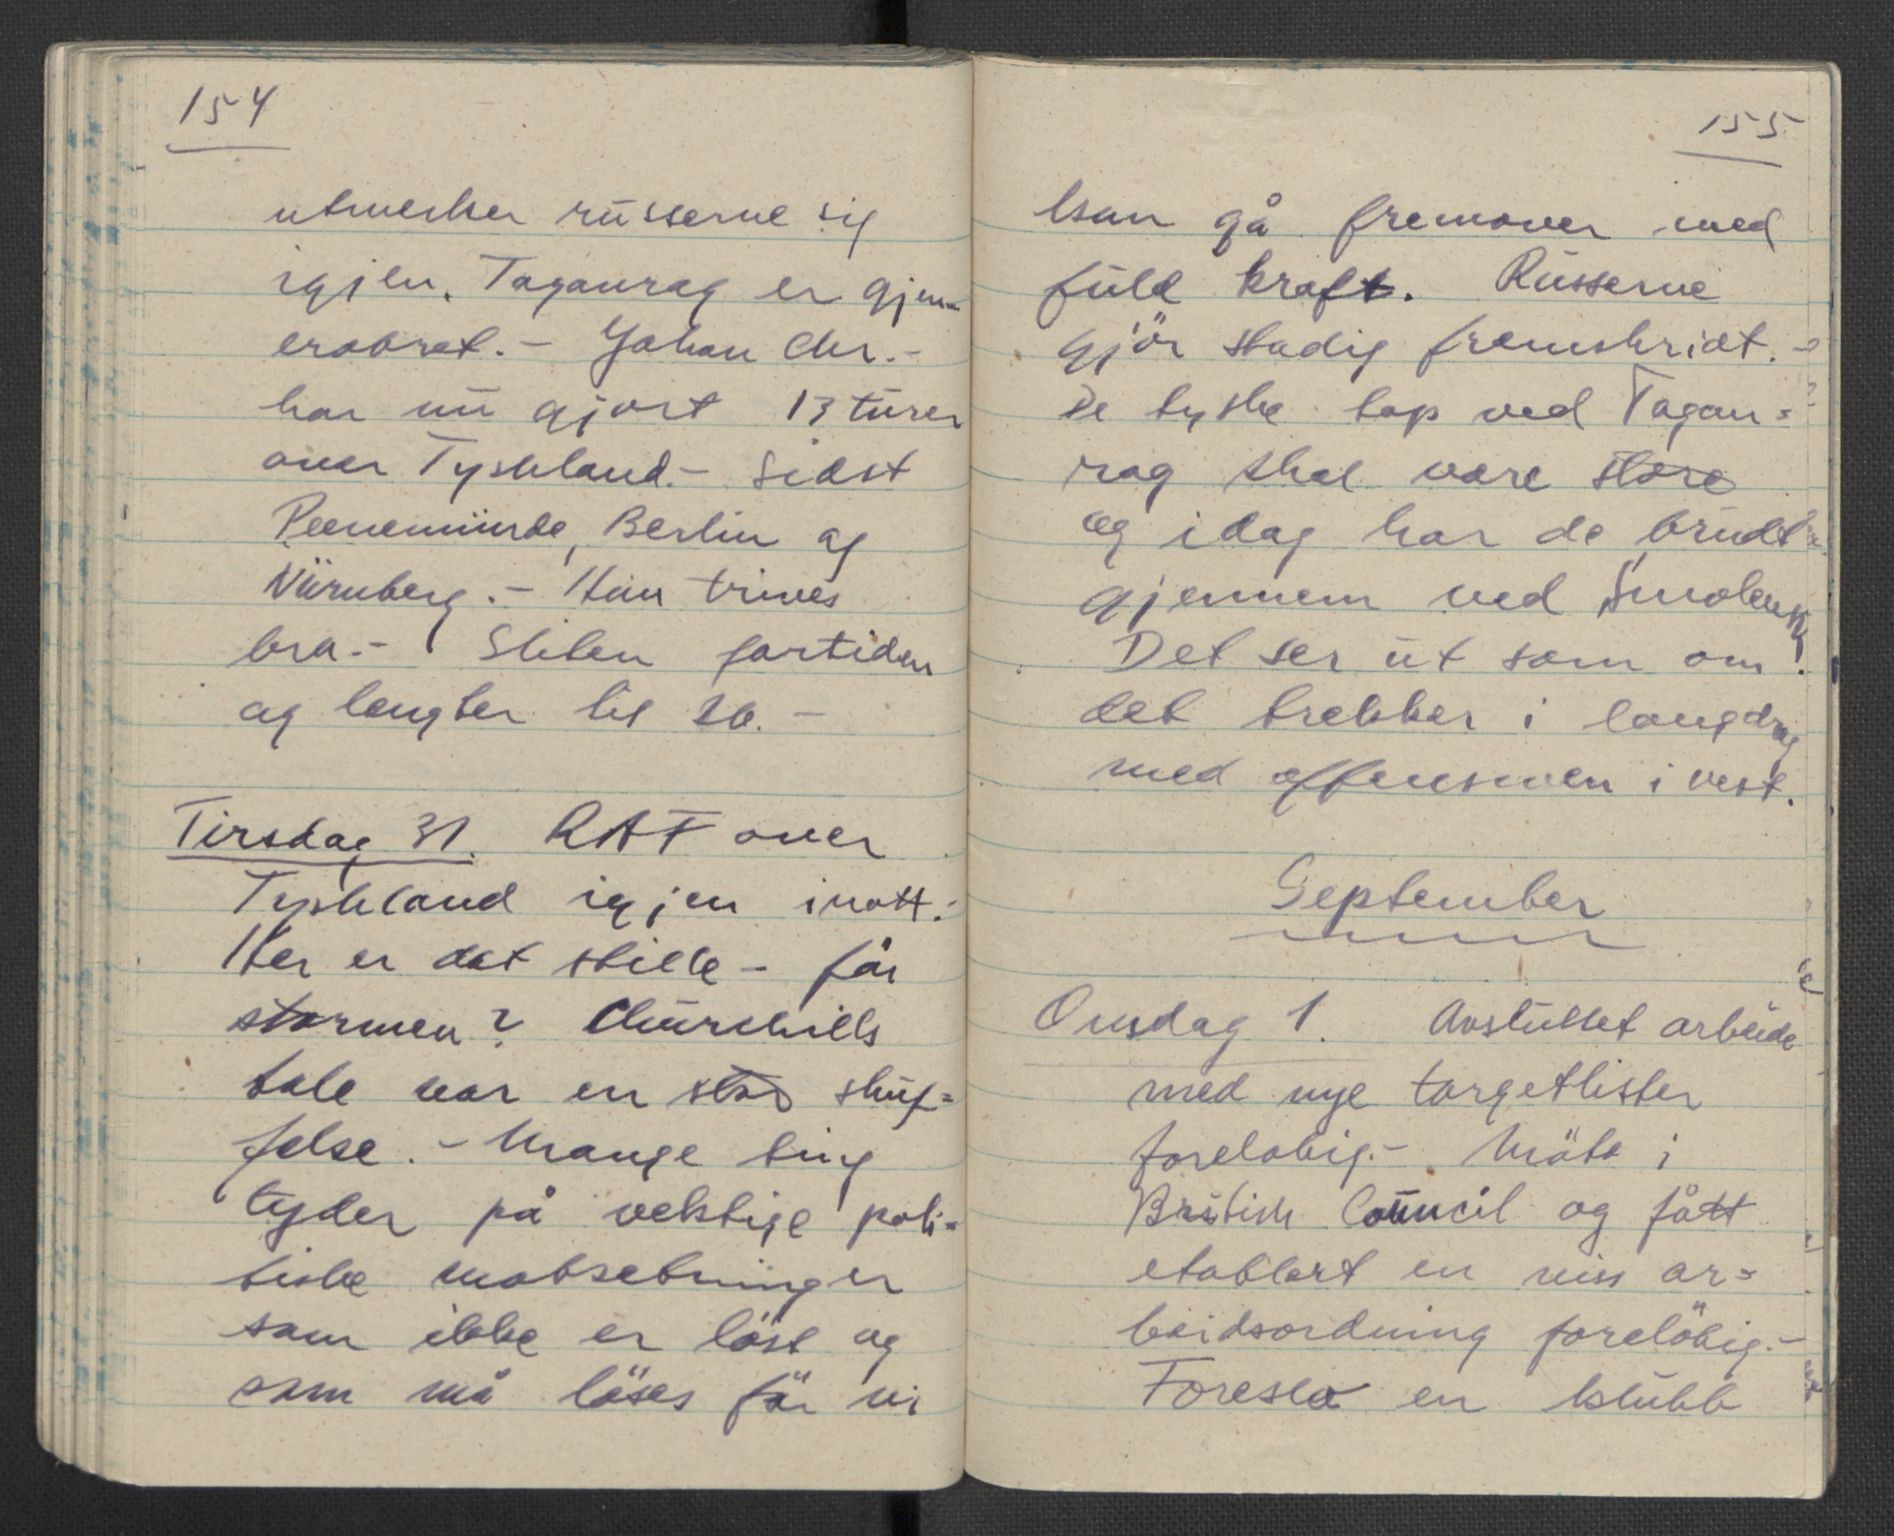 154
utmerker russerne sig
igjen. Taganrog er gjen-
erobret. - Johan Chr. -
har nu gjort 13 turer
over Tyskland. - Sidst
Peenemünde, Berlin og
Nürnberg. - Han trives
bra. - Sliten for tiden
og lengter til
Tirsdag 31. RAF over
Tyskland igjen inatt.
Her er det stille - før
stormen? Churchills
tale var en stor skuf=
felse. - Mange ting
tyder på vektige poli=
tiske motsetninger
som ikke er löst og
som må löses för vi
155
kan gå fremover med
fuld kraft. Russerne
gjör stadig fremskridt. -
De tyske tap ved Tagan=
rog skal være store
og idag har de brudt
gjennem ved Smolensk!
Det ser ut som om
det trekker i langdrag
med offensiven i vest.
September
Onsdag 1. Avsluttet arbeide
med nye targetlister
foreløbig. - Möte i
British Council og fått
etablert en viss ar=
beidsordning forelöbig. -
Foreslo en klubb